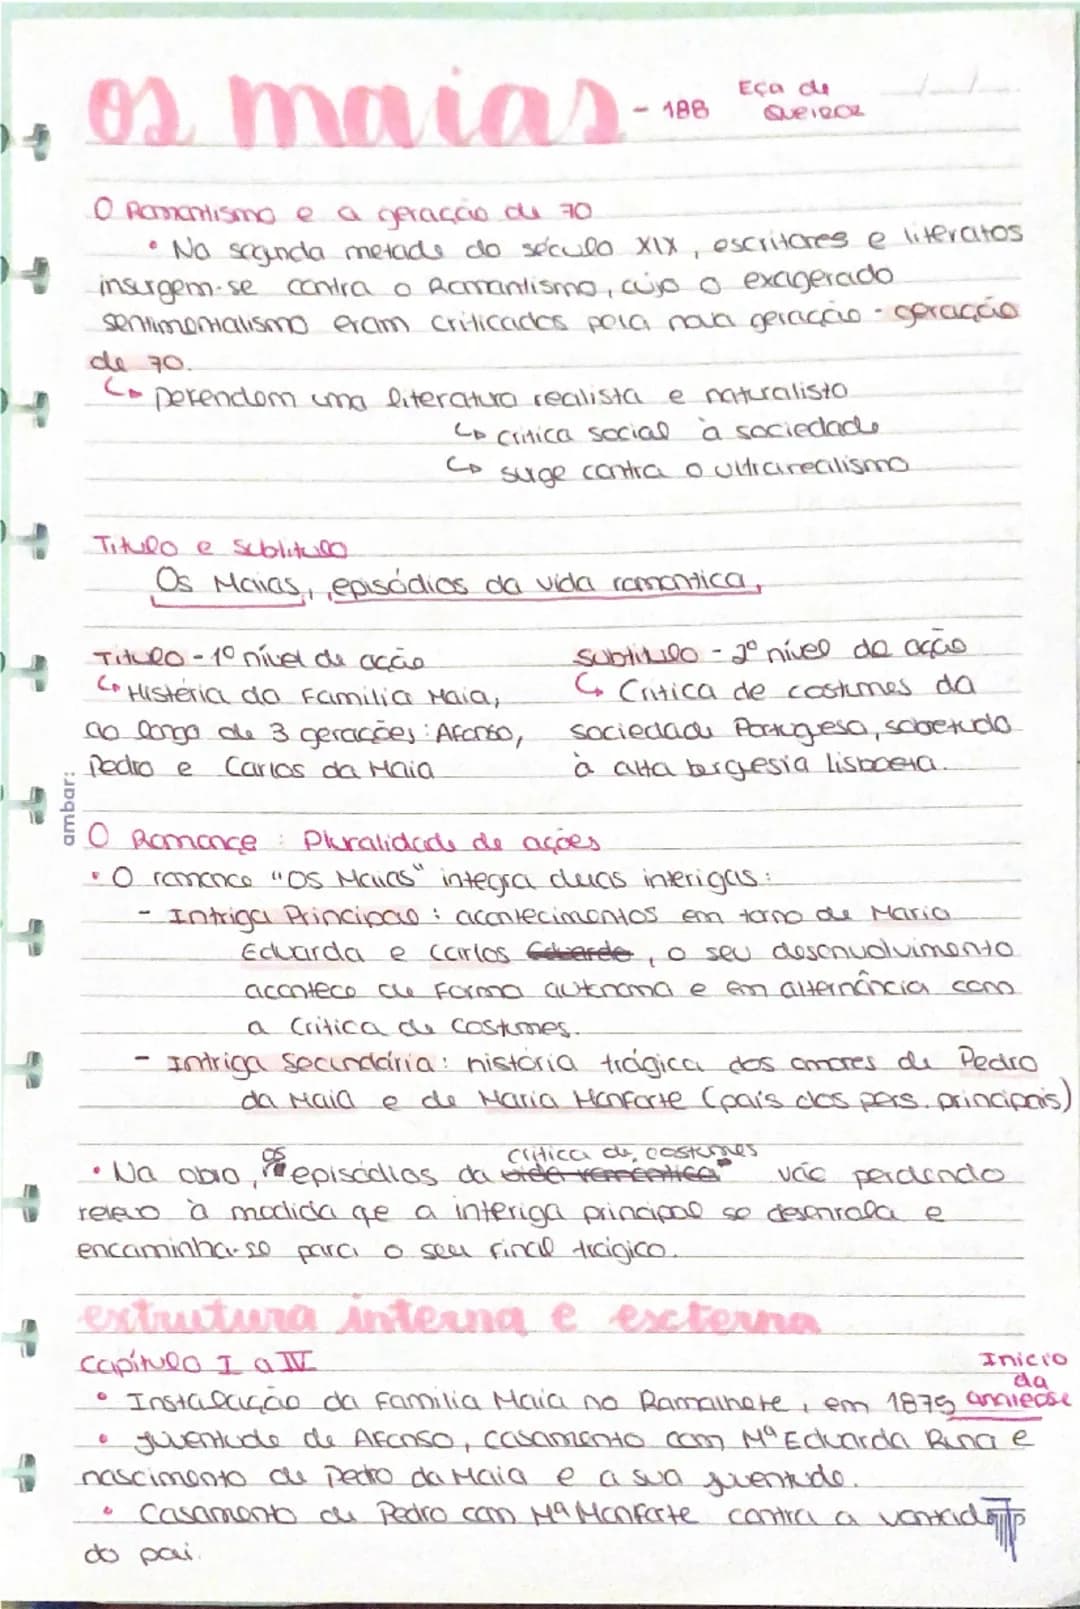 os maias - 188 Eça de Queiroz
O Romantismo e a geração de 70
• Na segunda metade do século XIX, escritores e literatos
insurgem-se contra o Romantismo, cujo o exagerado
sentimentalismo eram criticados pela nova geração - geração
de 70.
↳ Defendem uma literatura realista e naturalista
↳ crítica social à sociedade
↳ surge contra o ultrarealismo
Titulo e Subtitulo
Os Maias, episódios da vida romantica,
Titulo - 1º nível de acção
↳ História da Familia Maia,
ao longo de 3 gerações: Afonso,
Pedro e Carlos da Maia
Subtitulo - 2º nivel de acção
↳ Critica de costumes da
sociedade Portugesa, sobretudo
à alta burgesia lisboeta.
ambar:
O Romance : Pluralidade de ações
• O romance "Os Maias" integra duas interigas:
- Intriga Principal : acontecimentos em torno de Maria
Eduarda e Carlos Eduardo, o seu desenvolvimento
acontece de forma autonoma e em alternância com
a Critica de costumes.
- Intriga Secundária: história trágica dos amores de Pedro
da Maia e de Maria Monforte (pais dos pers. principais)
• Na obra, os episódios da critica de costumes vão perdendo
relevo à medida qe a interiga principal se desenrola e
encaminha-se para o seu final trágico.
extrutura interna e excterna
Capítulo I a IV
• Instalação da Familia Maia no Ramalhete, em 1875 Inicio da analepse
• juventude de Afonso, casamento com Mª Eduarda Runa e
nascimento de Pedro da Maia e a sua juventude.
• Casamento de Pedro com Mª Monforte contra a vontade
do pai.